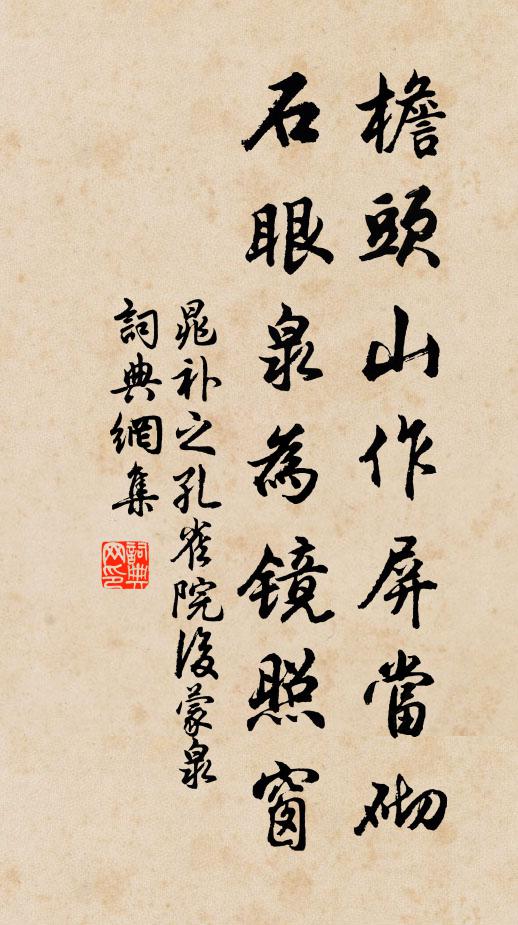 檐頭山作屏當砌
石眼泉為镜照窗
晁补之孔雀院後蒙泉
詞典網集
詞典網印